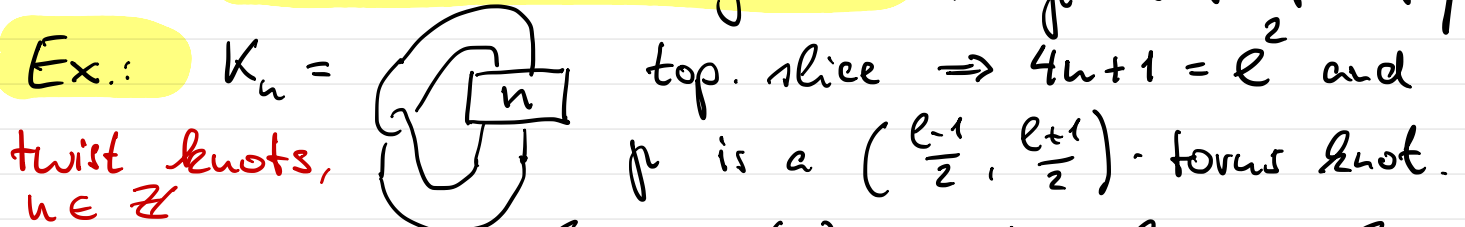 Ex.: Kₙ = n top. slice ⇒ 4n+1 = l² and
twist knots, γ is a (l-1/2, l+1/2) - torus knot.
n ∈ ℤ